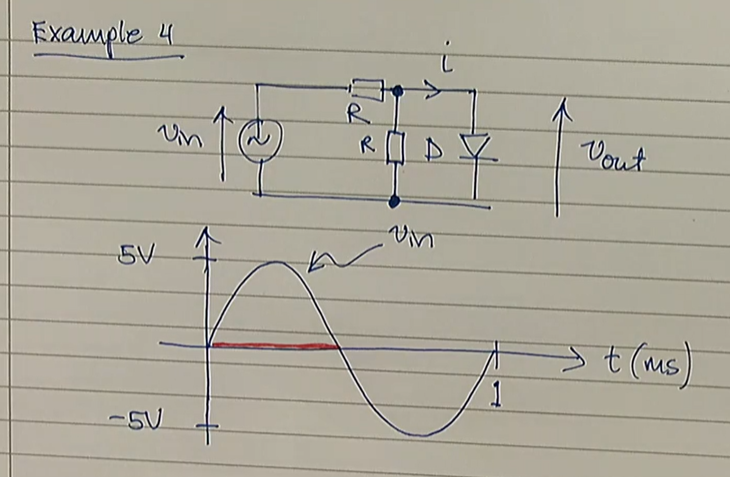 Example 4
i
R
Vin
R
D
Vout
Vin
5V
t (ms)
1
-5V